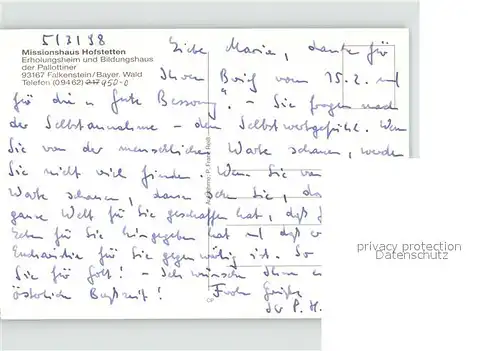 5/3/98
Missionshaus Hofstetten
Erholungsheim und Bildungshaus
der Pallottiner
93167 Falkenstein/Bayer. Wald
Telefon (09462) 217 950-0
Liebe Maria, danke für
Ihren Brief vom 15.2. und
für die "gute Besserung". – Sie fragen nach
der Selbstannahme – dem Selbstwertgefühl. Wenn
Sie von der menschlichen Warte schauen, werden
Sie nicht viel finden. Wenn Sie von
Warte schauen, dann sehen Sie, da
ganze Welt für Sie geschaffen hat, daß
Leben für Sie hingegeben hat und daß er
Eucharistie für Sie gegenwärtig ist. So
Sie für Gott! – Ich wünsche Ihnen
österliche Bußzeit! Frohe Grüße
P. H.
Aufnahme: P. Franz
privacy protection
Datenschutz